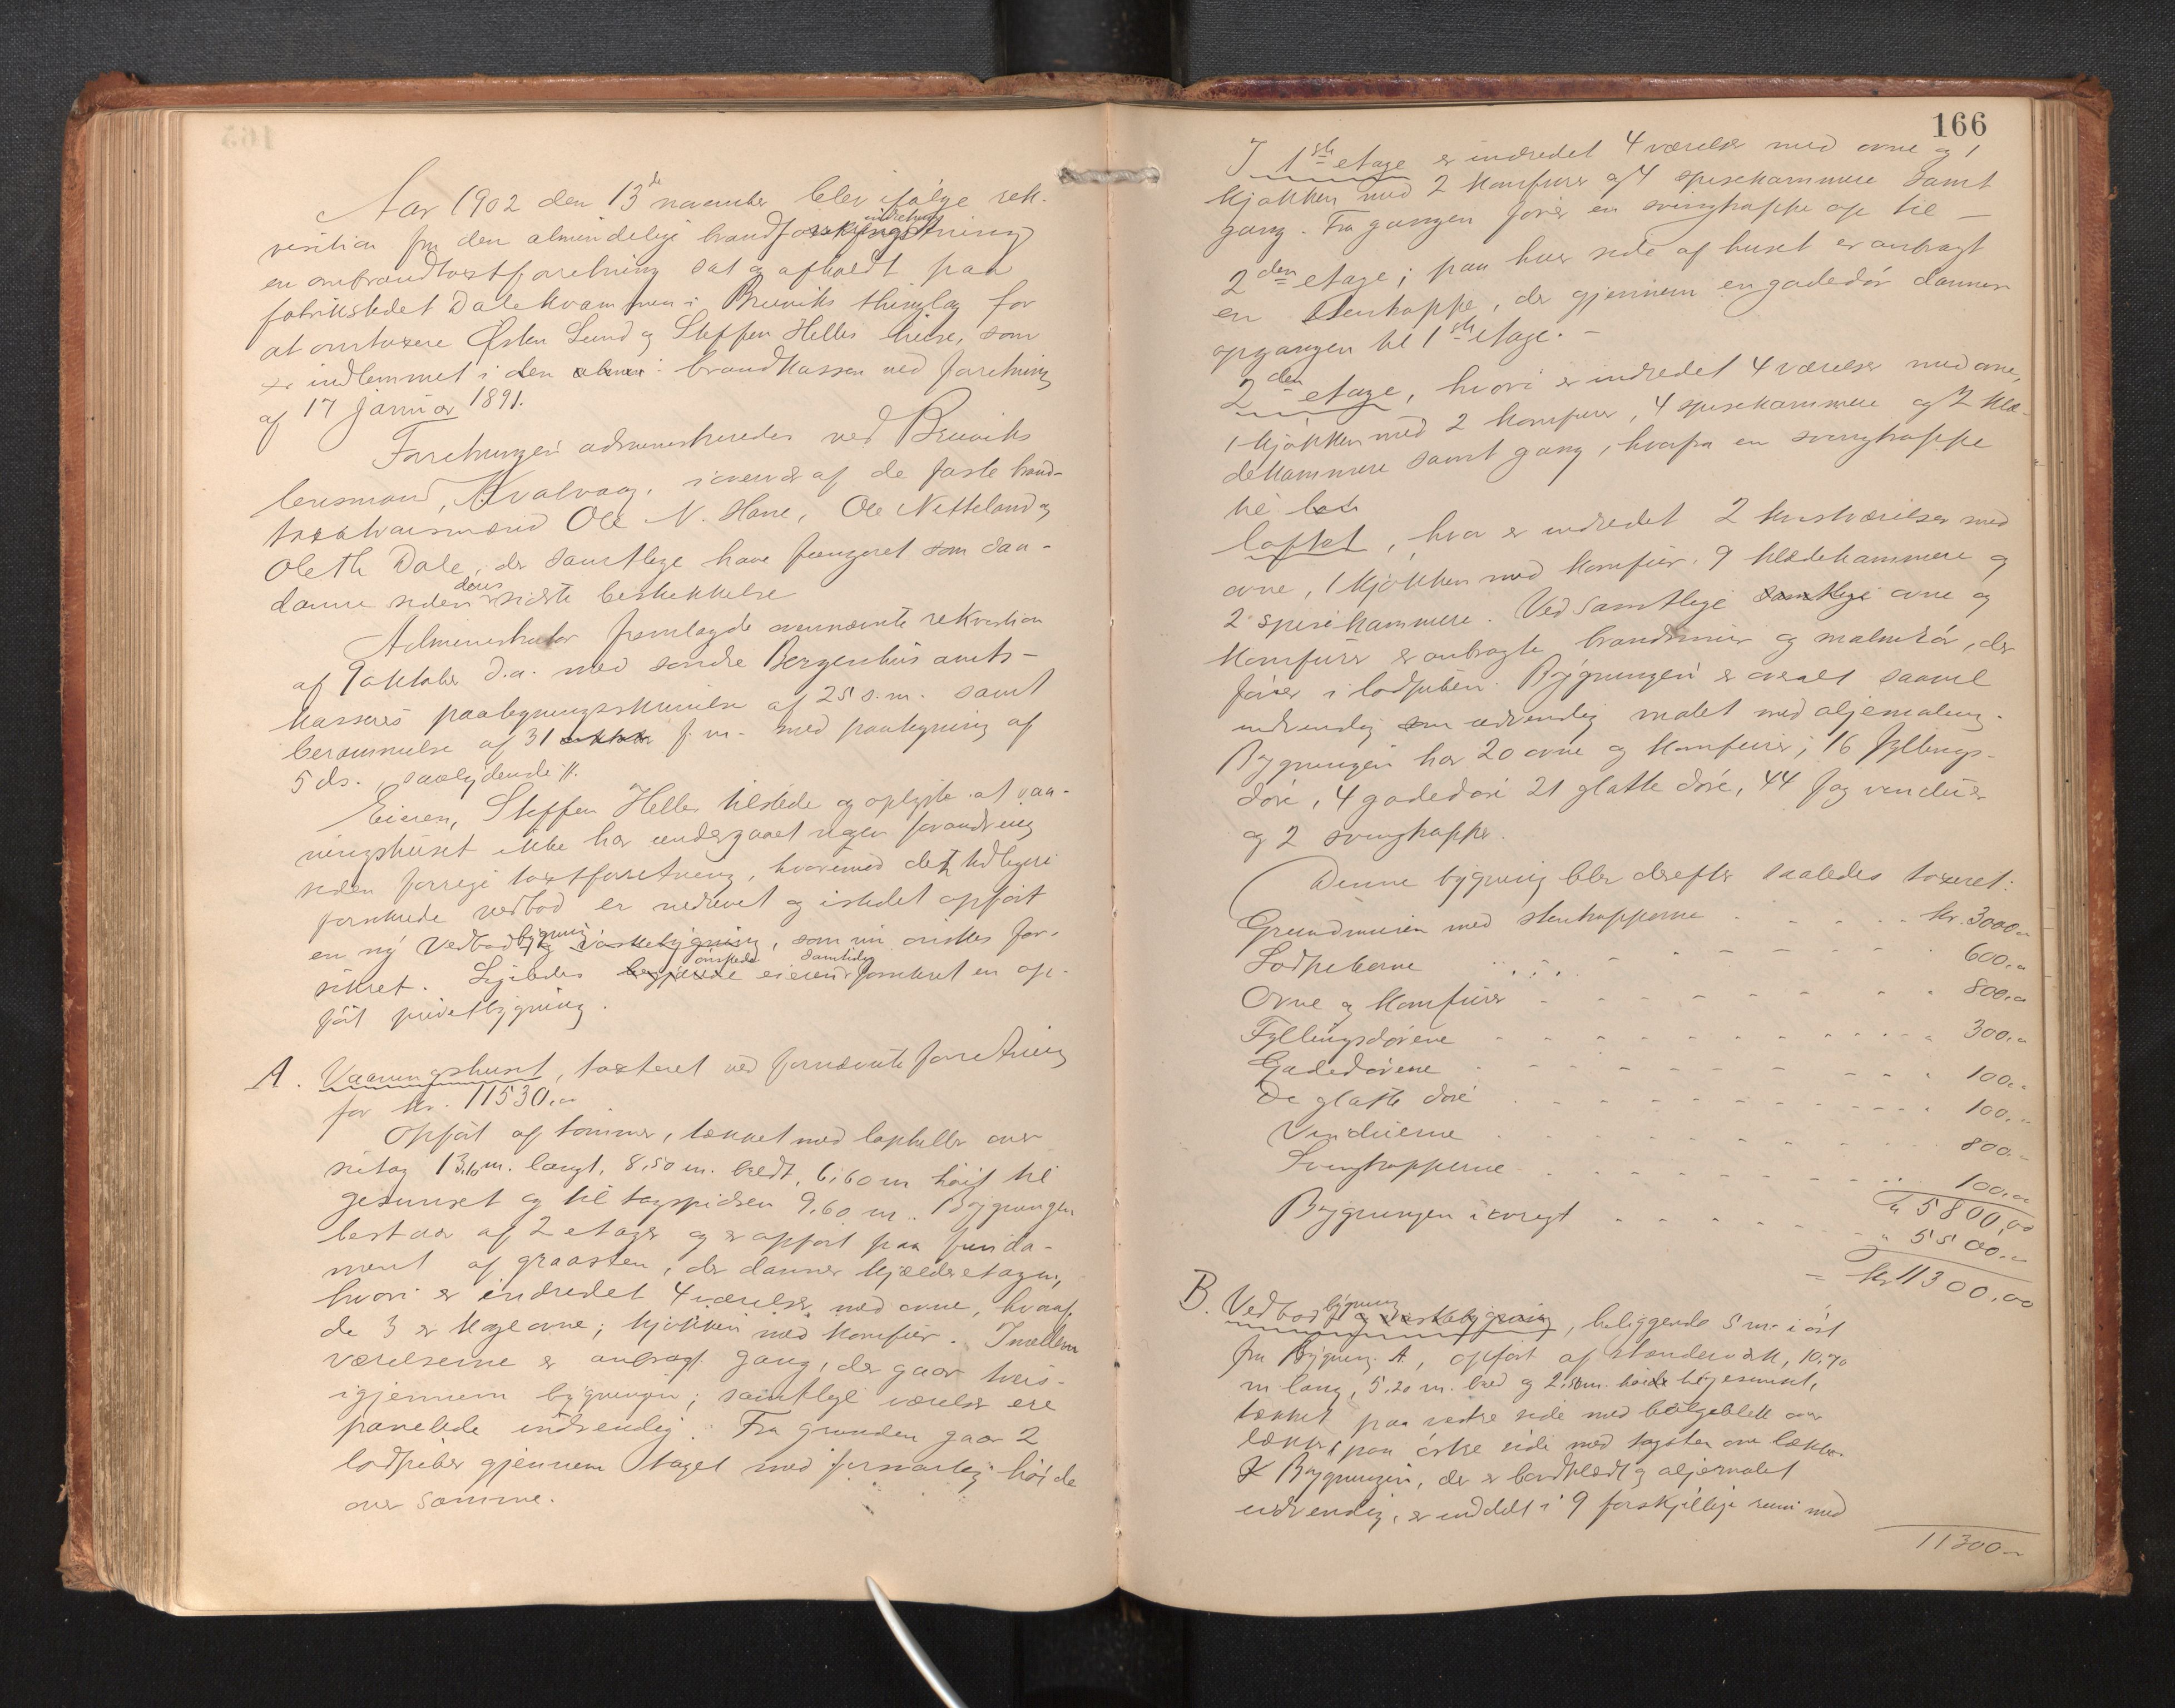 Aar 1902 den 13de november blev ifølge rek-
visition fra den almindelige brandforsikringsindretning
en ombrandtaxtforretning sat og afholdt paa
fabrikstedet Dalekvammen i Bruviks thinglag for
at omtaxere Østen Lund og Steffen Helles huse, som
er indlemmet i den almi: brandkassen ved forretning
af 17 januar 1891.
Forretningen administreredes ved Bruviks
lensmand, Kvalvaag, i overvær af de faste brand-
taxtationsmænd Ole N. Hane, Ole Netteland og
Ole Th Dale, der samtlige have fungeret som saa-
danne siden deres sidste beskikkelse
Administrator fremlagde ovennævnte rekvisition
af 9 oktober d.a. med søndre Bergenhus amts-
kasseres paategningsskrivelse af 25 s.m. samt
berammelse af 31 oktober f.m. med paategning af
5 ds., saalydende //.
Eieren, Steffen Helles tilstede og oplyste at vaa-
ningshuset ikke har undergaaet nogen forandring
siden forrige taxtforretning, hvorimod det tidligere
forsikrede vedbod er nedrevet og istedet opført
en ny Vedbodbygning og vaskebygning, som nu ønskes for-
sikret. Ligeledes begjærede ønskede eieren samtidig forsikret en op-
ført privetbygning.
A. Vaaningshuset, taxteret ved fornævnte forretning
for kr. 11530.00
Opført af tømmer, tækket med lapheller over
sutag 13,10 m. langt, 8,50 m. bredt, 6,60 m høit til
gesimset og til tagspidsen 9,60 m. Bygningen
bestaar af 2 etager og er opført paa funda-
ment af graasten, der danner kjælderetagen,
hvori er indredet 4 værelser med ovne, hvoraf
de 3 er kogeovne; kjøkken med komfur. Imellem
værelserne er anbragt gang, der gaar tvers-
igjennem bygningen; samtlige værelser ere
panelede indvendig. Fra grunden gaar 2
lodpiber gjennem taget med forsvarlig høide
over samme.
166
I 1ste etage er indredet 4 værelser med ovne og 1
kjøkken med 2 komfurer og 4 spisekammere samt
gang. Fra gangen fører en svingtrappe op til —
2den etage; paa hver side af huset er anbragt
en stentrappe, der gjennem en gadedør danner
opgangen til 1ste etage. —
2den etage, hvori er indredet 4 værelser med ovne,
1 kjøkken med 2 komfurer, 4 spisekammere og 2 klæ-
dekammere samt gang, hvorfra en svingtrappe
til loft
loftet, hvor er indredet 2 kvistværelser med
ovne, 1 kjøkken med komfur. 9 klædekammere og
2 spisekammere. Ved samtlige samtlige ovne og
komfurer er anbragte brandmur og malmrør, der
fører i lodpiben. Bygningen er overalt saavel
indvendig som udvendig malet med oljemaling.
Bygningen har 20 ovne og komfurer; 16 fyllings-
døre, 4 gadedøre 21 glatte døre, 44 fag vinduer
og 2 svingtrapper.
Denne bygning blev derefter saaledes taxeret:
Grundmuren med stentrapperne kr. 3000.00
Lodpiberne 600.00
Ovne og komfurer 800.00
Fyllingsdørene 300.00
Gadedørene 100.00
De glatte døre 100.00
Vinduerne 800.00
Svingtrapperne 100.00
" 5800,00
Bygningen iøvrigt " 5500.00
= kr 11300,00
B. Vedbodbygning og vaskebygning, beliggende 5 m. i øst
fra Bygning A, opført af stænderværk, 10,70
m lang, 5,20 m. bred og 2,50 m. høi til gesimset,
tækket paa vestre side med bølgeblik over
lækter, paa østre side med tagsten over lækter.
Bygningen, der er bordklædt og oljemalet
udvendig, er inddelt i 9 forskjellige rum med
11300.00